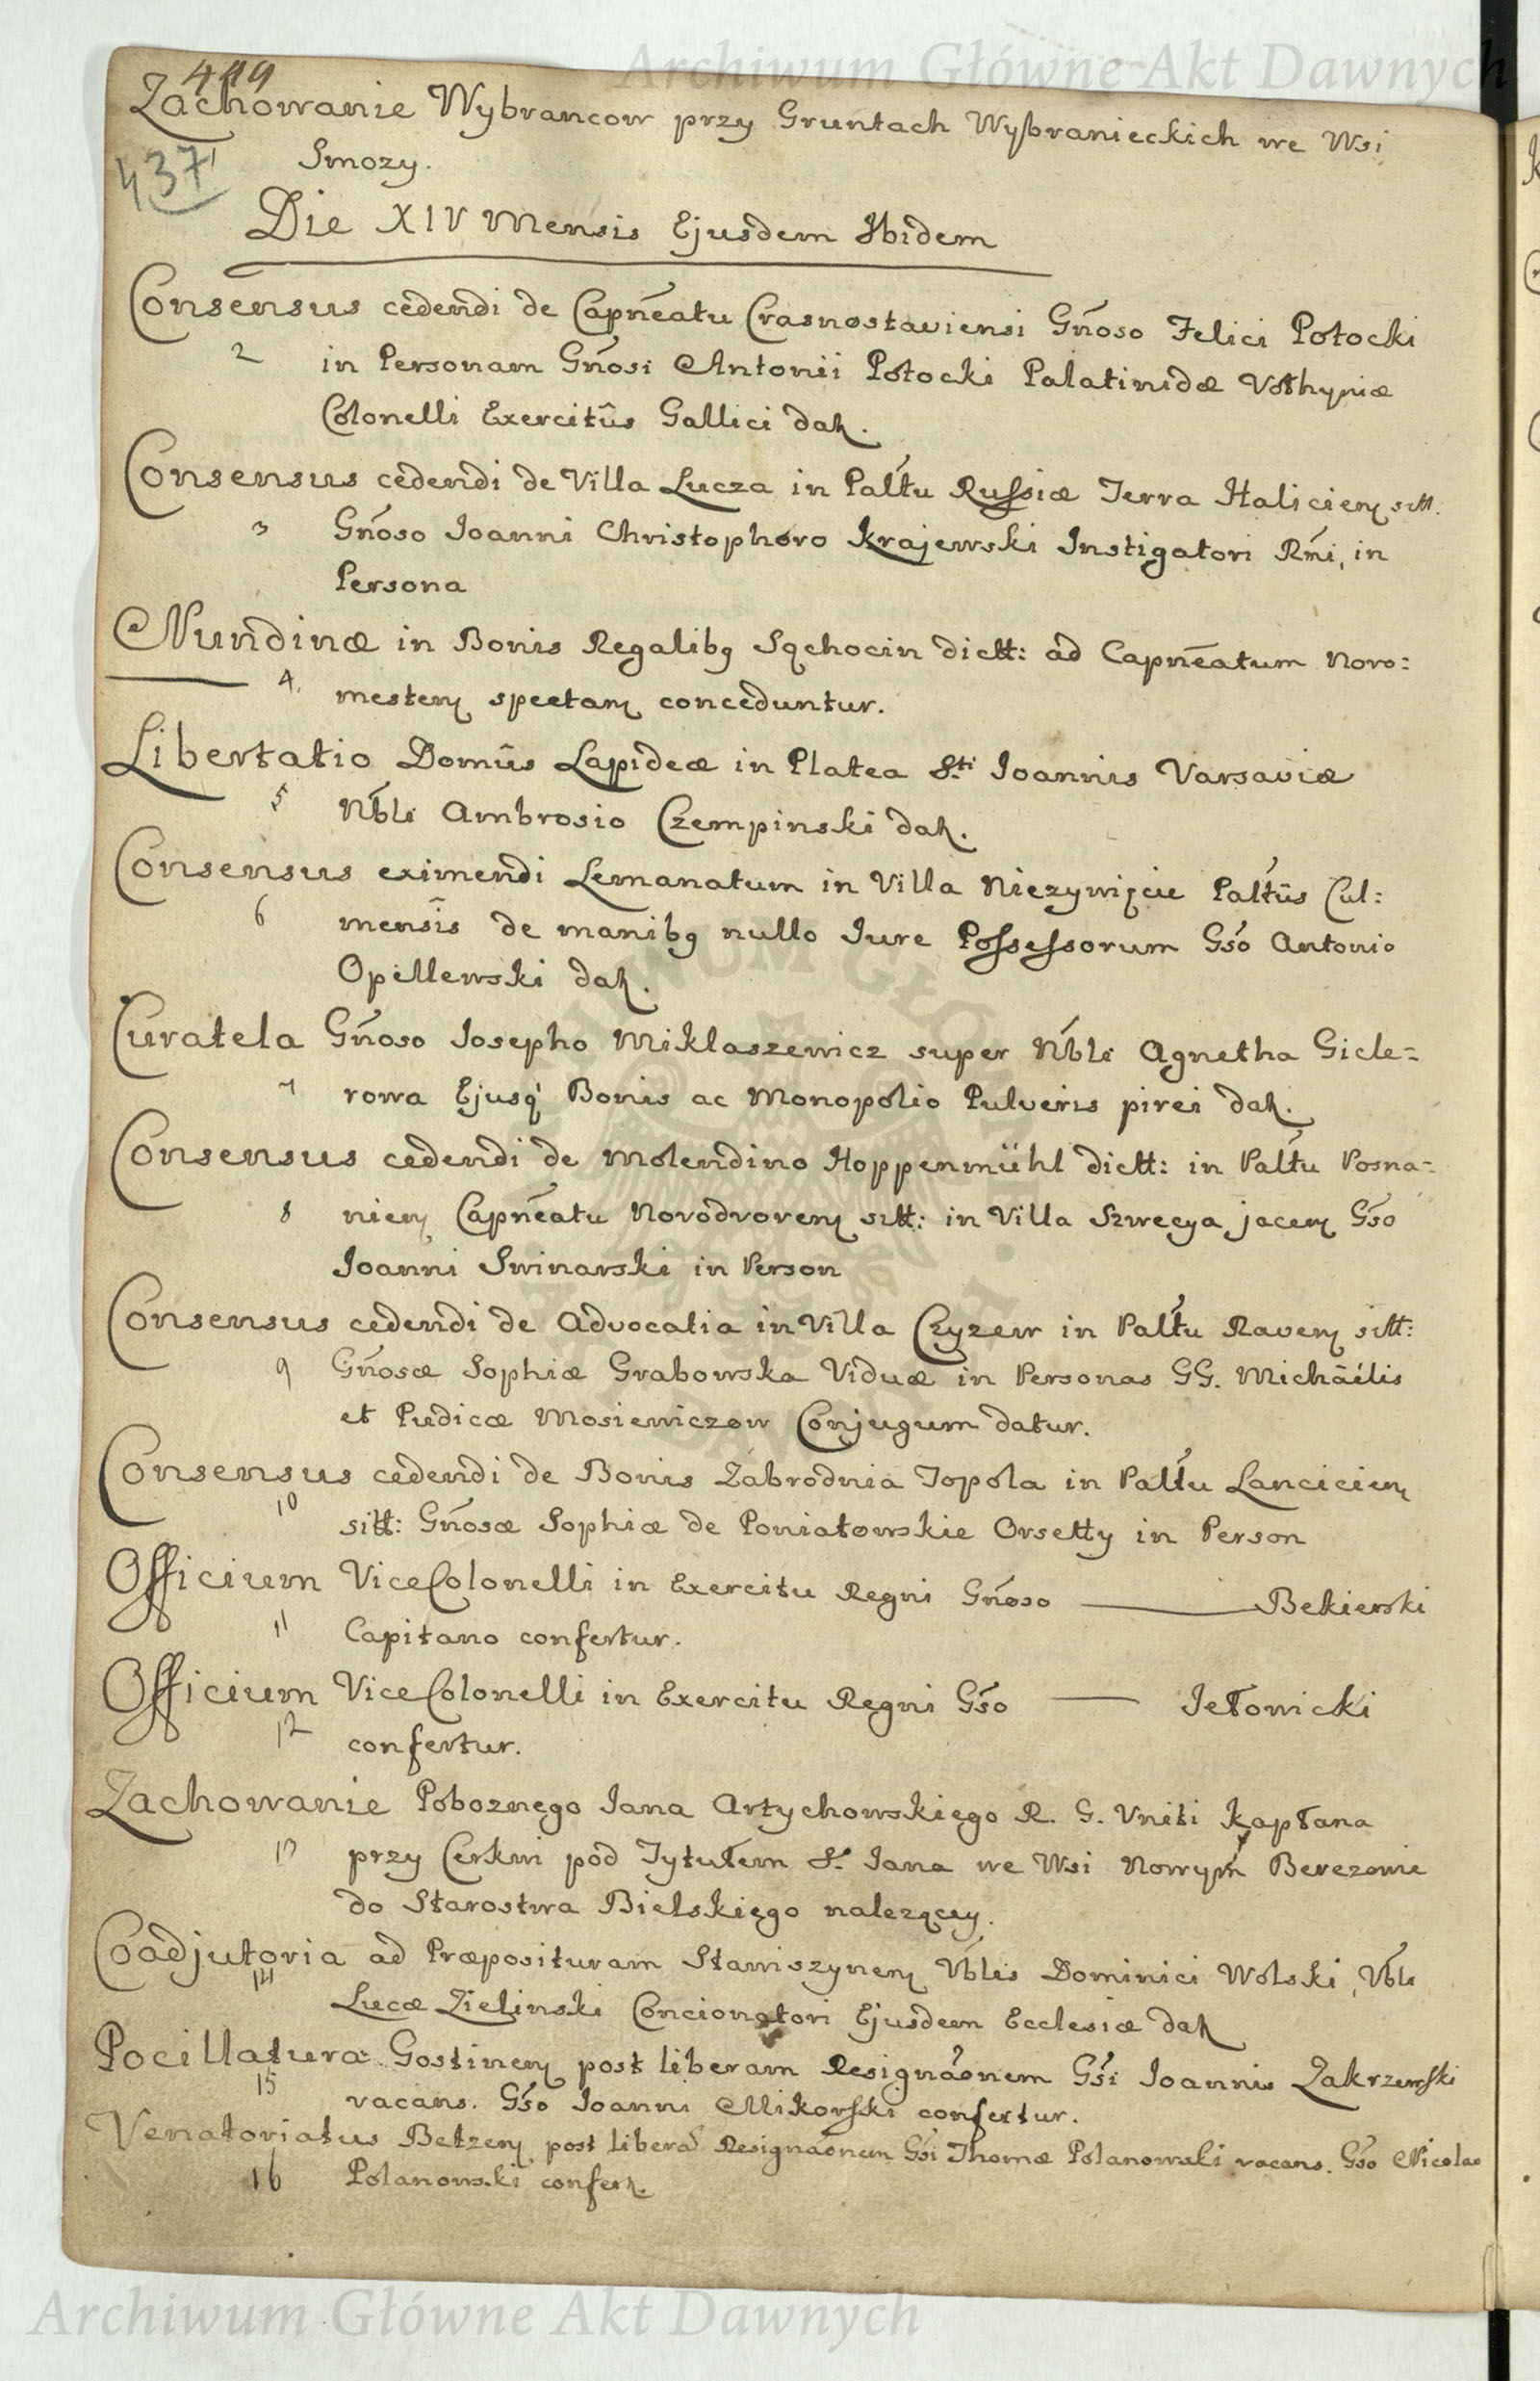 Archiwum Główne Akt Dawnych
449
Zachowanie Wybrancow przy Gruntach Wybranieckich we Wsi
437
Smozy.
Die XIV Mensis Ejusdem Ibidem
Consensus cedendi de Capnēatu Crasnostaviensi Gñoso Felici Potocki
2 in Personam Gñosi Antonii Potocki Palatinidæ Volhyniæ
Colonelli Exercitûs Gallici dat.
Consensus cedendi de Villa Lucza in Palttu Russiæ Terra Haliciens sitt.
3 Gñoso Ioanni Christophoro Krajewski Instigatori Rñi, in
Persona
Nundinæ in Bonis Regalibq Sqchocin dictt: ad Capnēatum Novo:
4. mestens spectans conceduntur.
Libertatio Domûs Lapideæ in Platea S.ti Joannis Varsaviæ
5 Nbli Ambrosio Czempinski dat.
Consensus eximendi Lemanatum in Villa Niezywięcie Palttûs Cul:
6 mensis de manibq nullo Jure Possessorum Gso Antonio
Opillewski dat.
Curatela Gñoso Josepho Miklaszewicz super Nbli Agnetha Gicle=
7 rowa Ejusq Bonis ac Monopolio Pulveris pirei dat.
Consensus cedendi de Molendino Hoppenmühl dictt: in Palttu Posna=
8 niens Capnēatu Novodvorens sitt: in Villa Szwecya jacens Gso
Joanni Swinarski in Person
Consensus cedendi de Advocatia in Villa Czyzew in Palttu Ravens sitt:
9 Gñosæ Sophiæ Grabowska Viduæ in Personas GG. Michaëlis
et Pudicæ Mosiewiczow Conjugum datur.
Consensus cedendi de Bonis Zabrodnia Topola in Palttu Lanciciens
10 sitt: Gñosæ Sophiæ de Poniatowskie Orsetty in Person
Officium ViceColonelli in Exercitu Regni Gñoso ——— Bekierski
11 Capitano confertur.
Officium ViceColonelli in Exercitu Regni Gso —— Jełowicki
12 confertur.
Zachowanie Poboznego Jana Artychowskiego R. G. Uniti Kapłana
13 przy Cerkwi pod Tytułem S. Jana we Wsi Nowym Berezowie
do Starostwa Bielskiego nalezącey.
Coadjutoria ad Præposituram Stawiszynens Vblis Dominici Wolski, Vbli
14 Lucæ Zielinski Concionatori Ejusdem Ecclesiæ dat
Pocillatura Gostinens post liberam Resignaonem Gsi Joannis Zakrzewski
15 vacans. Gso Joanni Mikorski confertur.
Venatoriatus Betzens post libera Resignaonem Gsi Thomæ Polanowski vacans. Gso Nicolao
16 Polanowski confert.
Archiwum Główne Akt Dawnych